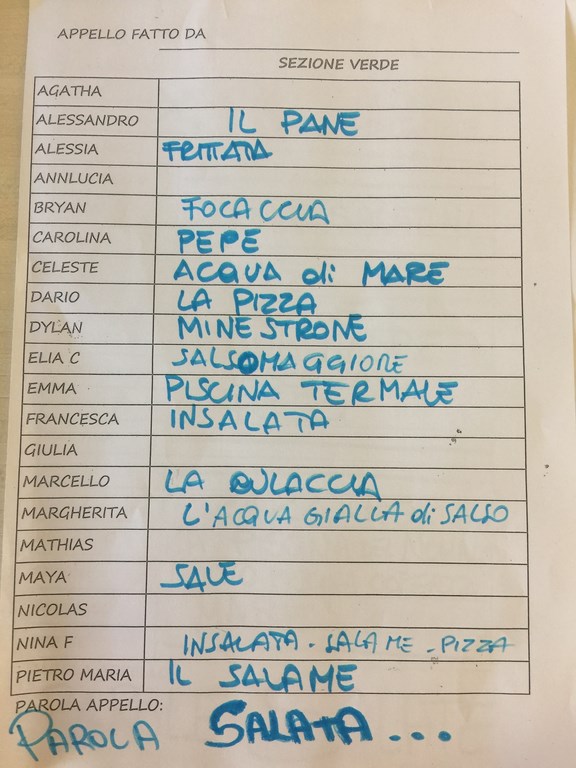 APPELLO FATTO DA
SEZIONE VERDE
AGATHA
ALESSANDRO IL PANE
ALESSIA FRITTATA
ANNLUCIA
BRYAN FOCACCIA
CAROLINA PEPE
CELESTE ACQUA di MARE
DARIO LA PIZZA
DYLAN MINESTRONE
ELIA C SALSOMAGGIORE
EMMA PISCINA TERMALE
FRANCESCA INSALATA
GIULIA
MARCELLO LA CULACCIA
MARGHERITA L'ACQUA GIALLA di SALSO
MATHIAS
MAYA SALE
NICOLAS
NINA F INSALATA - SALAME - PIZZA
PIETRO MARIA IL SALAME
PAROLA APPELLO:
PAROLA SALATA...